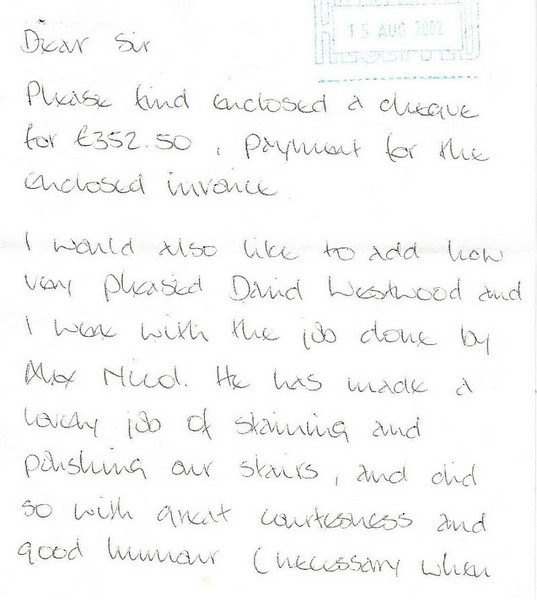 15 AUG 2002
Dear Sir
Please find enclosed a cheque
for £352.50, payment for the
enclosed invoice
I would also like to add how
very pleased David Westwood and
I were with the job done by
Alex Nicol. He has made a
lovely job of staining and
polishing our stairs, and did
so with great courteousness and
good humour (necessary when